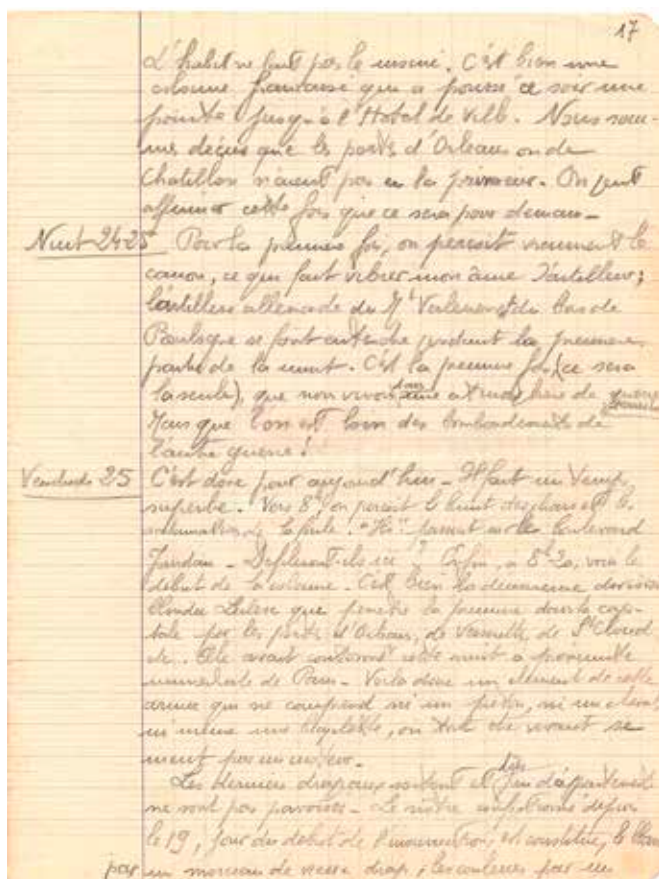 17
L'habit ne fait pas le moine. C'est bien une
colonne française qui a poussé ce soir une
pointe jusqu'à l'Hotel de Ville. Nous som-
mes déçus que les portes d'Orléans ou de
Chatillon n'aient pas eu la primeur. On peut
affirmer cette fois que ce sera pour demain -
Nuit 24 25 Pour la première fois, on perçoit vraiment le
canon, ce qui fait vibrer mon âme d'artilleur;
l'artillerie allemande du Mt Valérien et du bois de
Boulogne se font entendre pendant la première
partie de la nuit. C'est la première fois (ce sera
la seule), que nous vivons dans une atmosphère de guerre
Mais que l'on est loin des bombardements de
l'autre guerre!
Vendredi 25 C'est donc pour aujourd'hui - Il fait un temps
superbe. Vers 8h, on perçoit le bruit des chars et les
acclamations de la foule. "Ils" passent sur le boulevard
Jourdan - Défileront-ils ici? Enfin, à 8h20, voici le
début de la colonne. C'est bien la deuxième division
blindée Leclerc qui pénètre la première dans la capi-
tale par les portes d'Orléans, de Vanves, de St Cloud
etc. Elle avait cantonné cette nuit à proximité
immédiate de Paris - Voilà donc un élément de cette
armée qui ne comprend ni un piéton, ni un cheval,
ni même une bicyclette, où tout ce vivant se
meut par un moteur.
Les derniers drapeaux sortent et très peu d'appartements
ne sont pas pavoisés - Le nôtre confectionné depuis
le 19, jour du début de l'insurrection, est constitué, le blanc
par un morceau de vieux drap; les couleurs par un